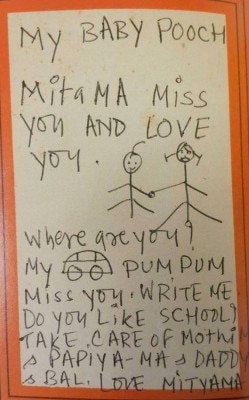 My BABY POOCH
MitaMA Miss
you AND LOVE
you.
Where are you?
My PUM PUM
Miss you. WRITE ME
DO you LIKE SCHOOL?
TAKE CARE OF Mothi
& PAPIYA-MA & DADDY
& BAL. LOVE MITYAMA